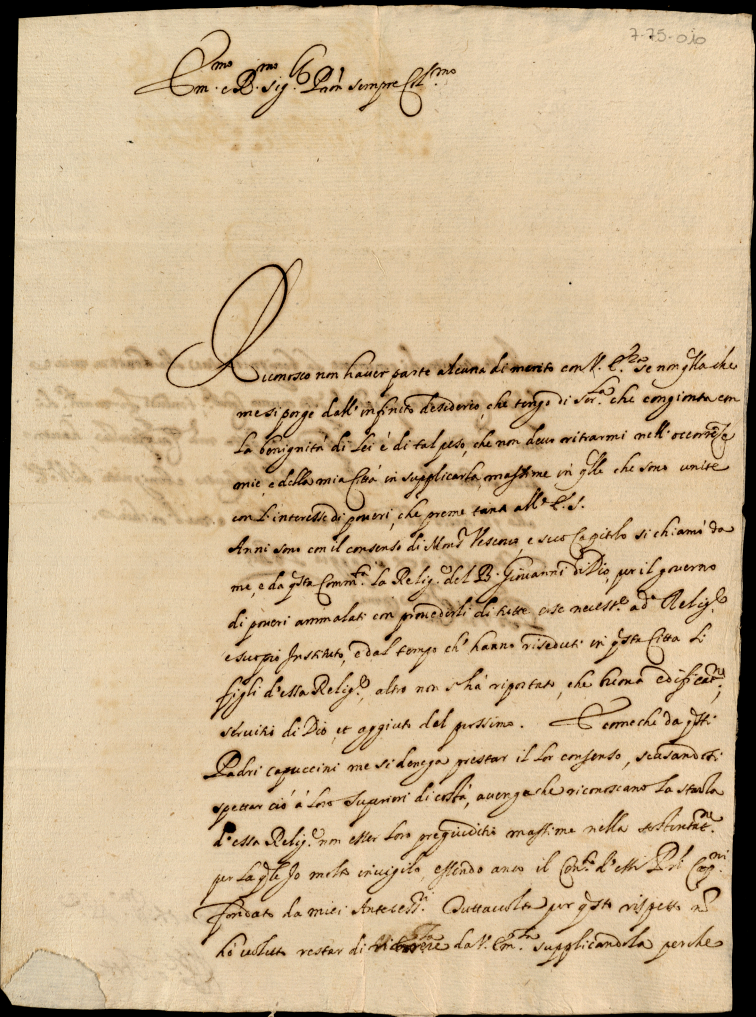 7-75-010
Em.mo e R.mo Sig.r Pròn sempre Col.mo
Riconosco non haver parte alcuna di merito con V. E.za se non q.lla che
me si porge dall'infinito desiderio, che tengo di Ser.la che congionta con
la benignità di lei è di tal peso, che non devo ritrarmi nell'occorr.ze
mie, e della mia Città in supplicarla, massime in q.lle che sono unite
con l'interesse di poveri, che preme tanto all' E. S.
Anni sono con il consenso di Mons.r Vescovo e suo Capitolo si chiamò da
me, e da q.sta Comm.tà la Relig.e del B. Giovanni di Dio, per il governo
di poveri ammalati con provederli di tutte cose necess.e ad.a Relig.e
e suo pio Instituto, e dal tempo ch' hanno riseduti in q.sta Città li
figli d'essa Relig.e, altro non s'hà riportato, che buona edificat.ne,
servitio di Dio, et aggiuto del prossimo. E come che da q.sti
Padri Capuccini me si denega prestar il lor consenso, scusandosi
spettar ciò à loro Superiori di costà, avenga che riconoscano la
d'essa Relig.e non esser loro pregiuditio massime nella sostentat.ne
per la q.le Io molto invigilo, essendo anco il Con.to d'essi P.ri Cap.ni
fondato da miei Antecess.ri Tuttavolta per q.sto rispetto n.
hò voluto restar di da V. Em.za supplicandola perche